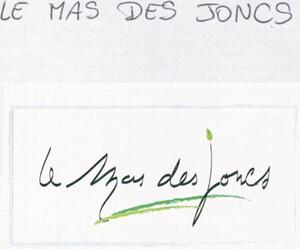 LE MAS DES JONCS
le Mas des joncs